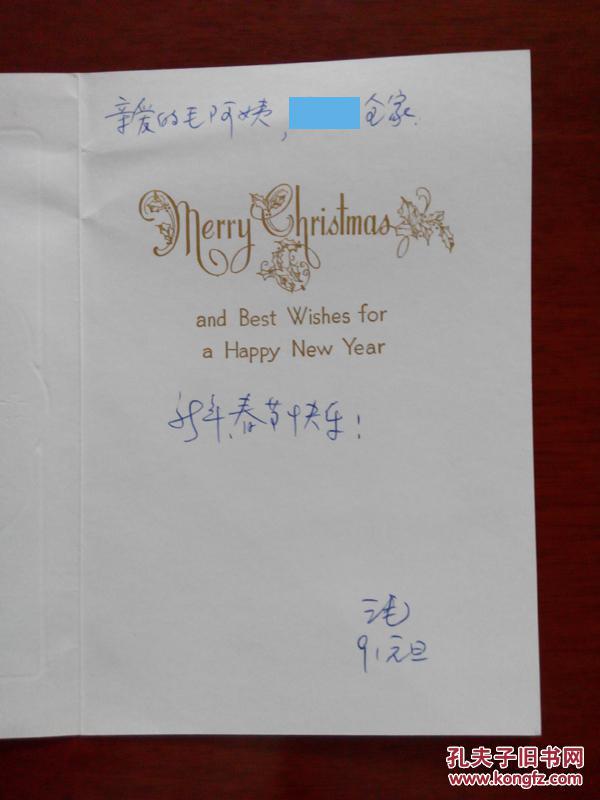 亲爱的毛阿姨, 全家.
Merry Christmas
and Best Wishes for
a Happy New Year
新年、春节快乐!
三毛
91元旦
孔夫子旧书网
www.kongfz.com